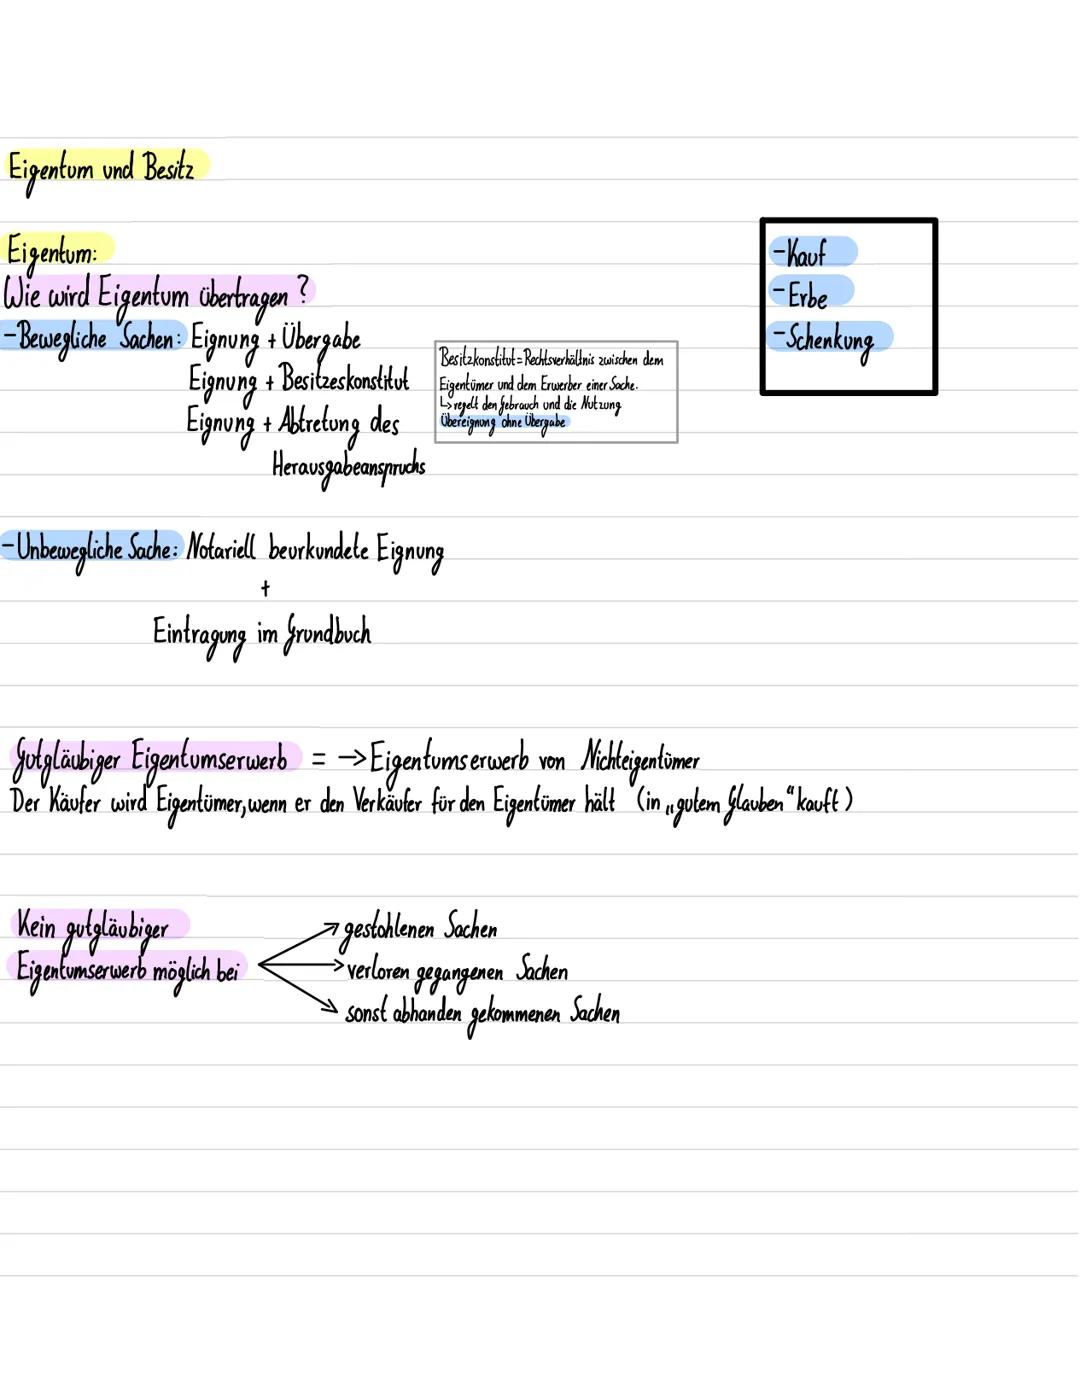 Eigentum und Besitz
Eigentum:
Wie wird Eigentum übertragen?
-Bewegliche Sachen: Eignung + Übergabe
Eignung + Besitzeskonstitut
Eignung + Abtretung des
Herausgabeanspruchs
Besitzkonstitut = Rechtsverhältnis zwischen dem
Eigentümer und dem Erwerber einer Sache.
↳ regelt den Gebrauch und die Nutzung
Übereignung ohne Übergabe
-Kauf
-Erbe
-Schenkung
-Unbewegliche Sache: Notariell beurkundete Eignung
+
Eintragung im Grundbuch
Gutgläubiger Eigentumserwerb = → Eigentumserwerb von Nichteigentümer
Der Käufer wird Eigentümer, wenn er den Verkäufer für den Eigentümer hält (in „gutem Glauben“ kauft)
Kein gutgläubiger
Eigentumserwerb möglich bei
→ gestohlenen Sachen
→ verloren gegangenen Sachen
→ sonst abhanden gekommenen Sachen